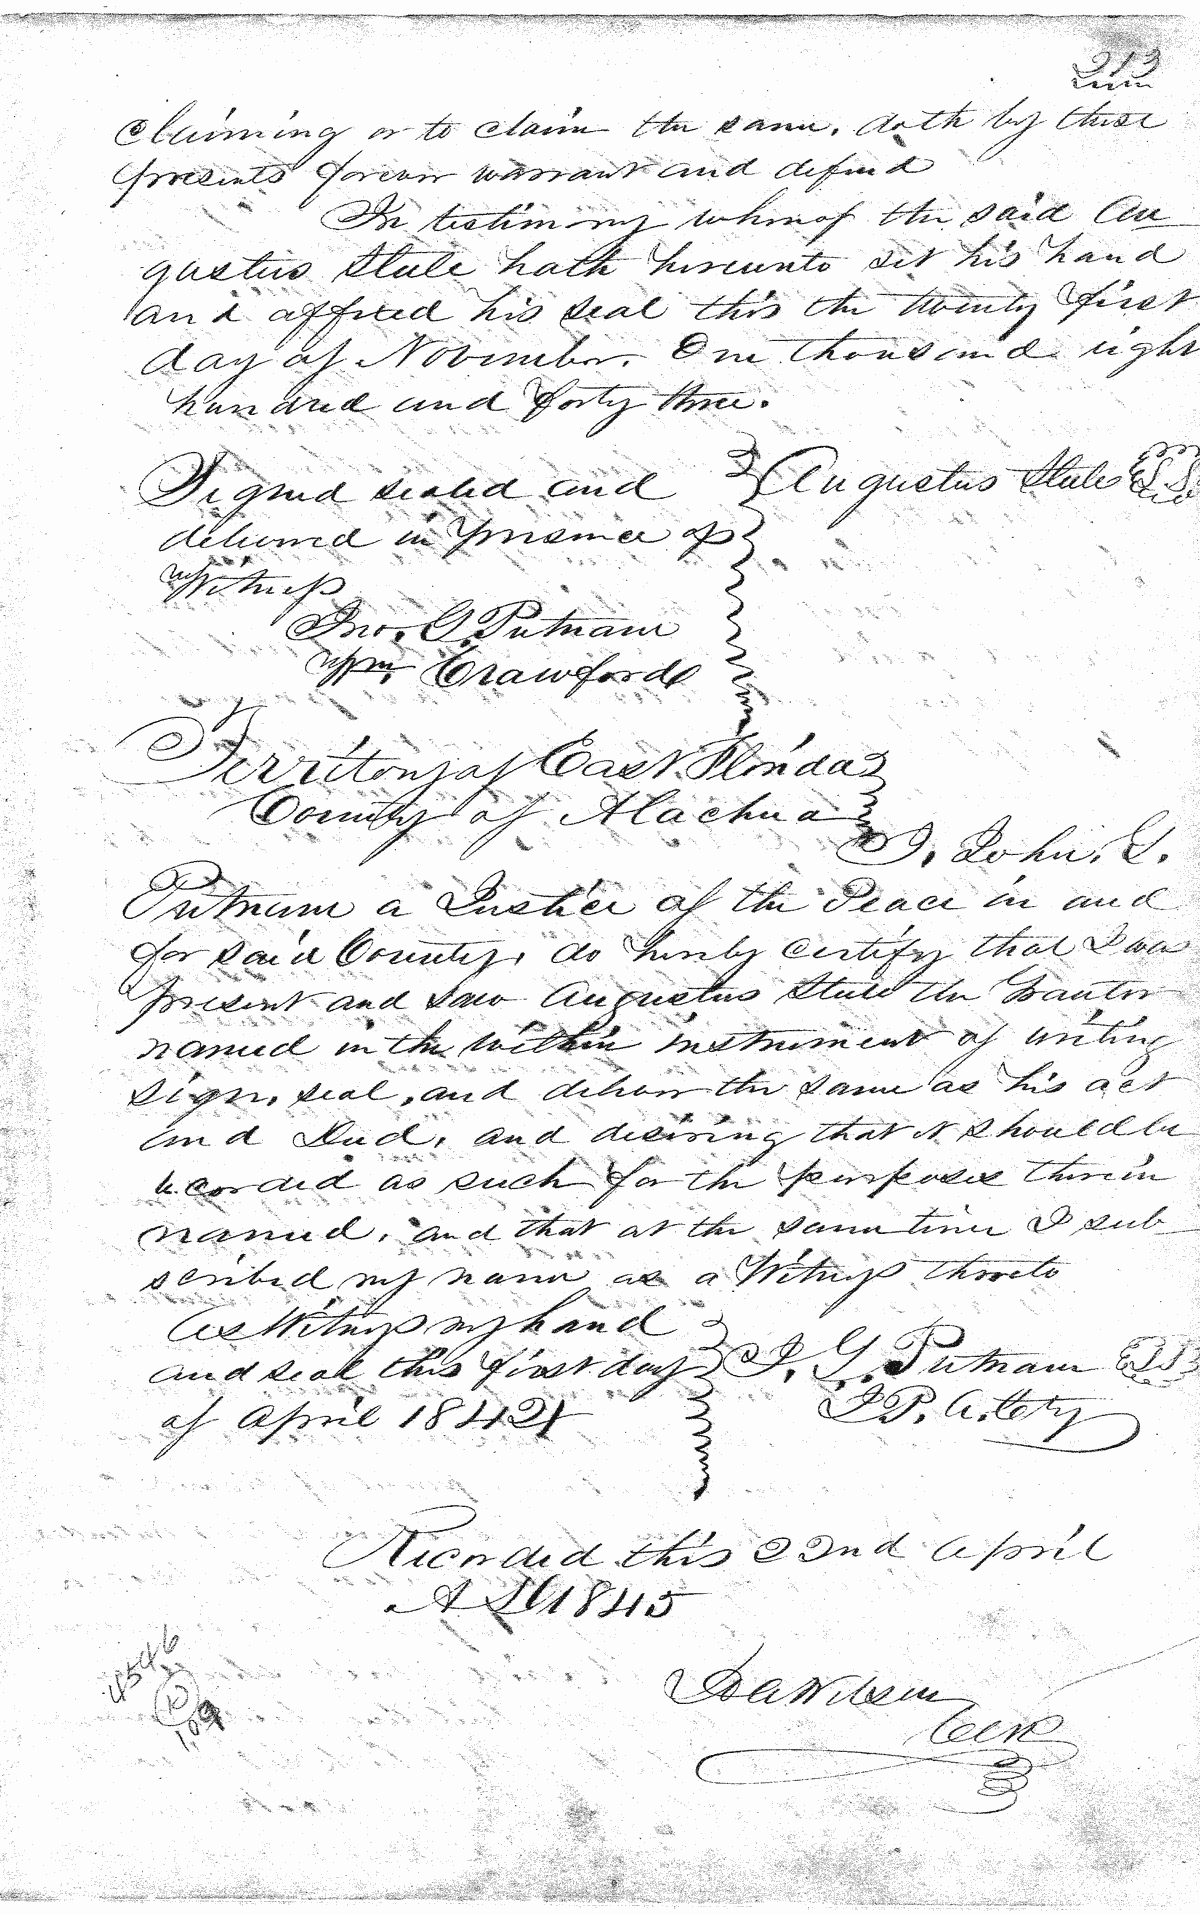 313
Claiming or to claim the same, doth by these
presents forever warrant and defend
In testimony whereof the said Au
gustus Stule hath hereunto set his hand
and affixed his seal this the twenty first
day of November. One thousand eight
hundred and forty three.
Signed sealed and Augustus Stule L.S.
delivered in presence of
Witness
Jno. G. Putnam
Wm. Crawford
Territory of East Florida
County of Alachua
I, John. G.
Putnam a Justice of the Peace in and
for said County, do hereby certify that I was
present and saw Augustus Stule the Grantor
named in the within instrument of writing
sign, seal, and deliver the same as his act
and Deed, and desiring that it should be
recorded as such for the purposes therein
named, and that at the same time I sub
scribed my name as a Witness thereto
As Witness my hand
and seal this first day J. G. Putnam L.S.
of April 1842 J P. A. Cty
Recorded this 22nd April
A D 1845
Wilson
Clerk
4546
109